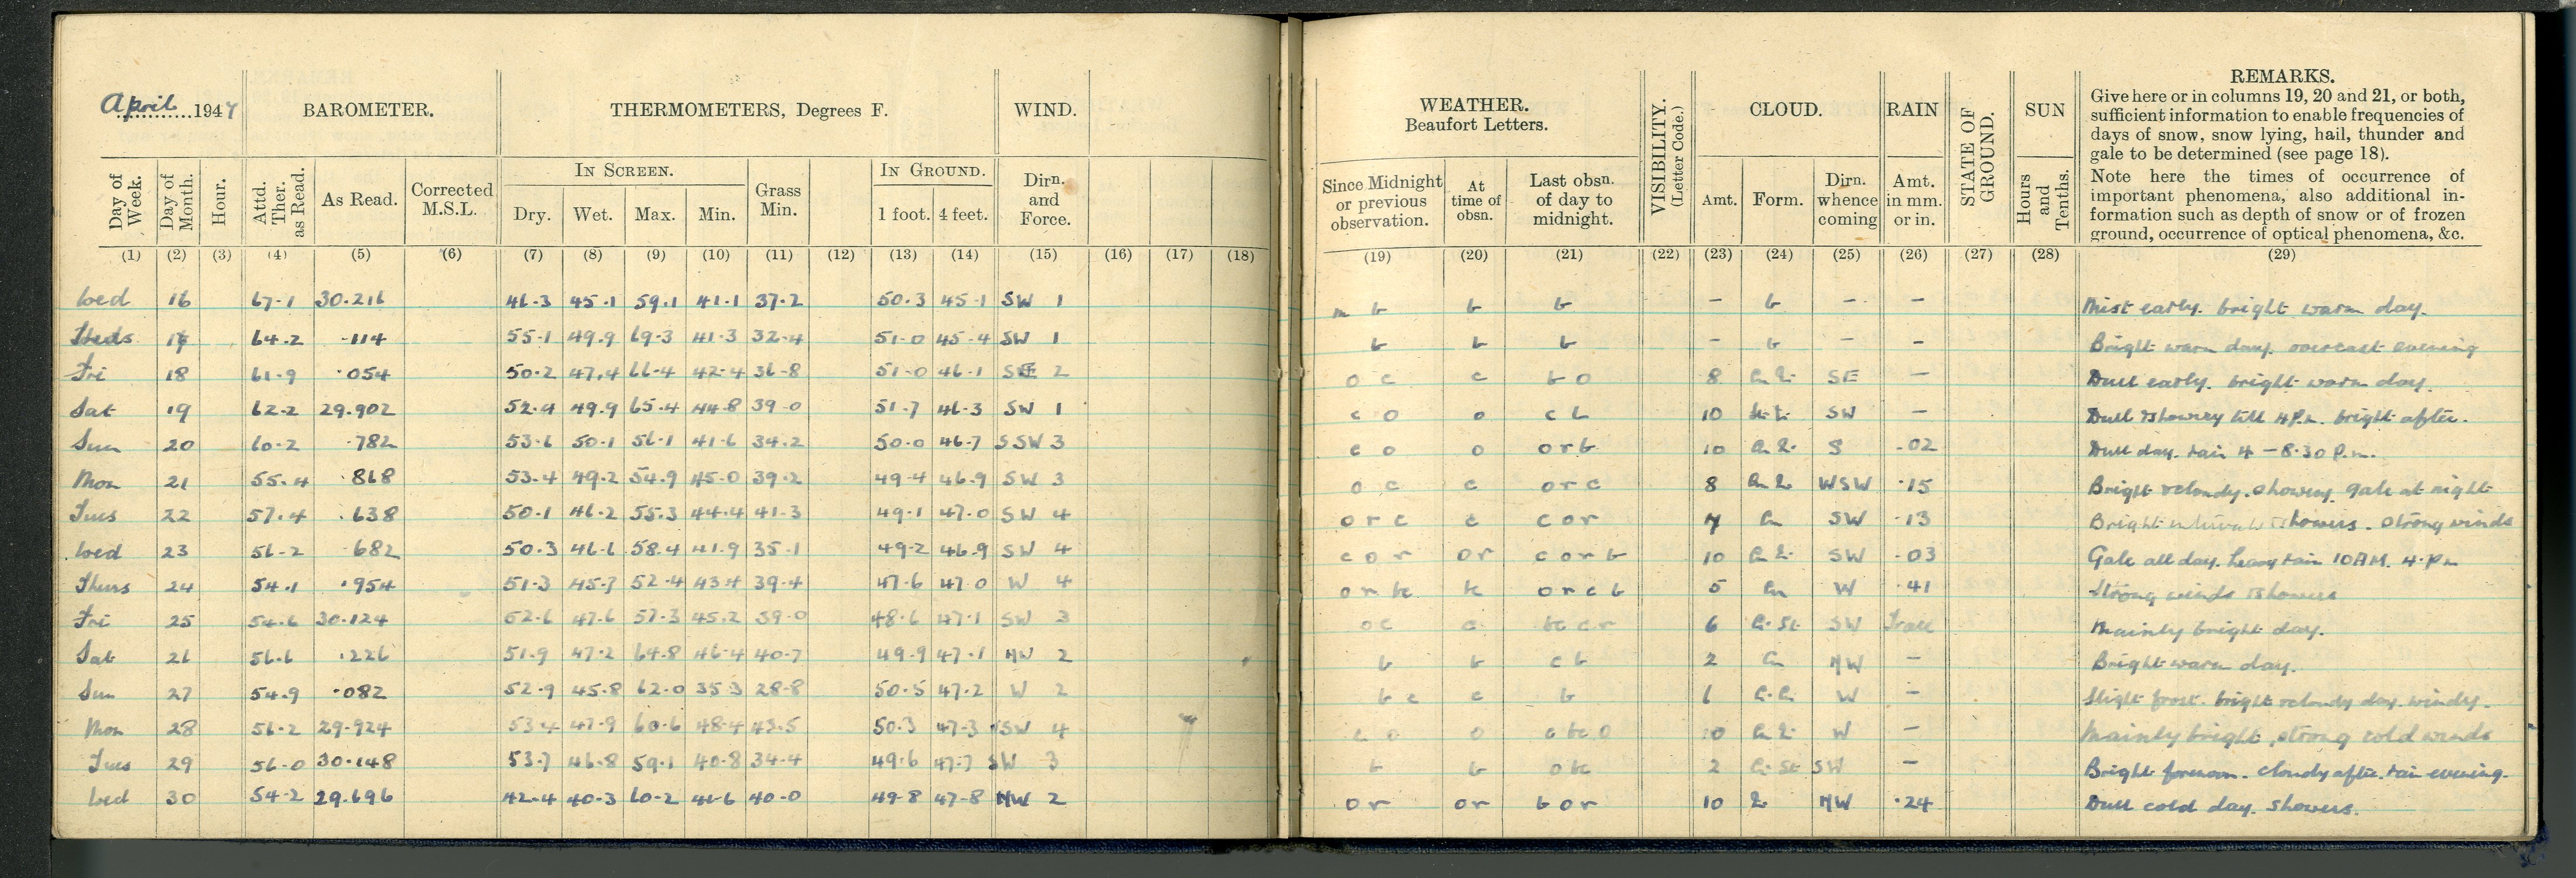 April 1947 BAROMETER. THERMOMETERS, Degrees F. WIND.
In Screen. In Ground.
Day of Week. Day of Month. Hour. Attd. Ther. as Read. As Read. Corrected M.S.L. Dry. Wet. Max. Min. Grass Min. 1 foot. 4 feet. Dirn. and Force.
(1) (2) (3) (4) (5) (6) (7) (8) (9) (10) (11) (12) (13) (14) (15) (16) (17) (18)
Wed 16 67.1 30.216 46.3 45.1 59.1 41.1 37.2 50.3 45.1 SW 1
17 64.2 .114 55.1 49.9 69.3 41.3 32.4 51.0 45.4 SW 1
Fri 18 61.9 .054 50.2 47.4 66.4 42.4 36.8 51.0 46.1 SE 2
Sat 19 62.2 29.902 52.9 49.9 65.4 44.8 39.0 51.7 46.3 SW 1
Sun 20 60.2 .782 53.6 50.1 56.1 41.6 34.2 50.0 46.7 SSW 3
Mon 21 55.4 .868 53.4 49.2 54.9 45.0 39.2 49.4 46.9 SW 3
Tues 22 57.4 .638 50.1 46.2 55.3 44.4 41.3 49.1 47.0 SW 4
Wed 23 56.2 .682 50.3 46.6 58.4 41.9 35.1 49.2 46.9 SW 4
Thurs 24 54.1 .954 51.3 45.7 52.4 43.4 39.4 47.6 47.0 W 4
Fri 25 54.6 30.124 52.6 47.6 57.3 45.2 39.0 48.6 47.1 SW 3
Sat 26 56.6 .226 51.9 47.2 64.8 46.4 40.7 49.9 47.1 NW 2
Sun 27 54.9 .082 52.9 45.8 62.0 35.3 28.8 50.5 47.2 W 2
Mon 28 56.2 29.924 53.4 47.9 60.6 48.4 43.5 50.3 47.3 SW 4
Tues 29 56.0 30.148 53.7 46.8 59.1 40.8 34.4 49.6 47.7 SW 3
Wed 30 54.2 29.696 42.4 40.3 60.2 41.6 40.0 49.8 47.8 NW 2
WEATHER. Beaufort Letters. VISIBILITY. (Letter Code.) CLOUD. RAIN STATE OF GROUND. SUN
Since Midnight or previous observation. At time of obsn. Last obsn. of day to midnight. Amt. Form. Dirn. whence coming Amt. in mm. or in. Hours and Tenths.
REMARKS.
Give here or in columns 19, 20 and 21, or both,
sufficient information to enable frequencies of
days of snow, snow lying, hail, thunder and
gale to be determined (see page 18).
Note here the times of occurrence of
important phenomena, also additional in-
formation such as depth of snow or of frozen
ground, occurrence of optical phenomena, &c.
(19) (20) (21) (22) (23) (24) (25) (26) (27) (28) (29)
m b b b – b – – Mist early. bright warm day.
b b b – b – – Bright warm day. overcast evening
o c c b o 8 SE – Dull early. bright warm day.
c o o c b 10 SW – Dull & showery till 4 P.m. bright after.
c o o o r b 10 S .02 Dull day. rain 4 – 8.30 P.m.
o c c o r c 8 WSW .15 Bright & cloudy. showery. gale at night
o r c c c o r 7 SW .13 Bright intervals & showers. Strong winds
c o r o r c o r b 10 SW .03 Gale all day. heavy rain 10 AM. 4. Pm
o r bc bc o r c b 5 W .41 Strong winds & showers
o c c bc c r 6 SW Trace Mainly bright day.
b b c b 2 NW – Bright warm day.
b c c b 6 W – Slight frost. bright & cloudy day. windy.
c o o c bc o 10 W – Mainly bright, strong cold winds
b b o bc 2 SW – Bright forenoon. cloudy after. rain evening.
o r o r b o r 10 NW .24 Dull cold day. Showers.